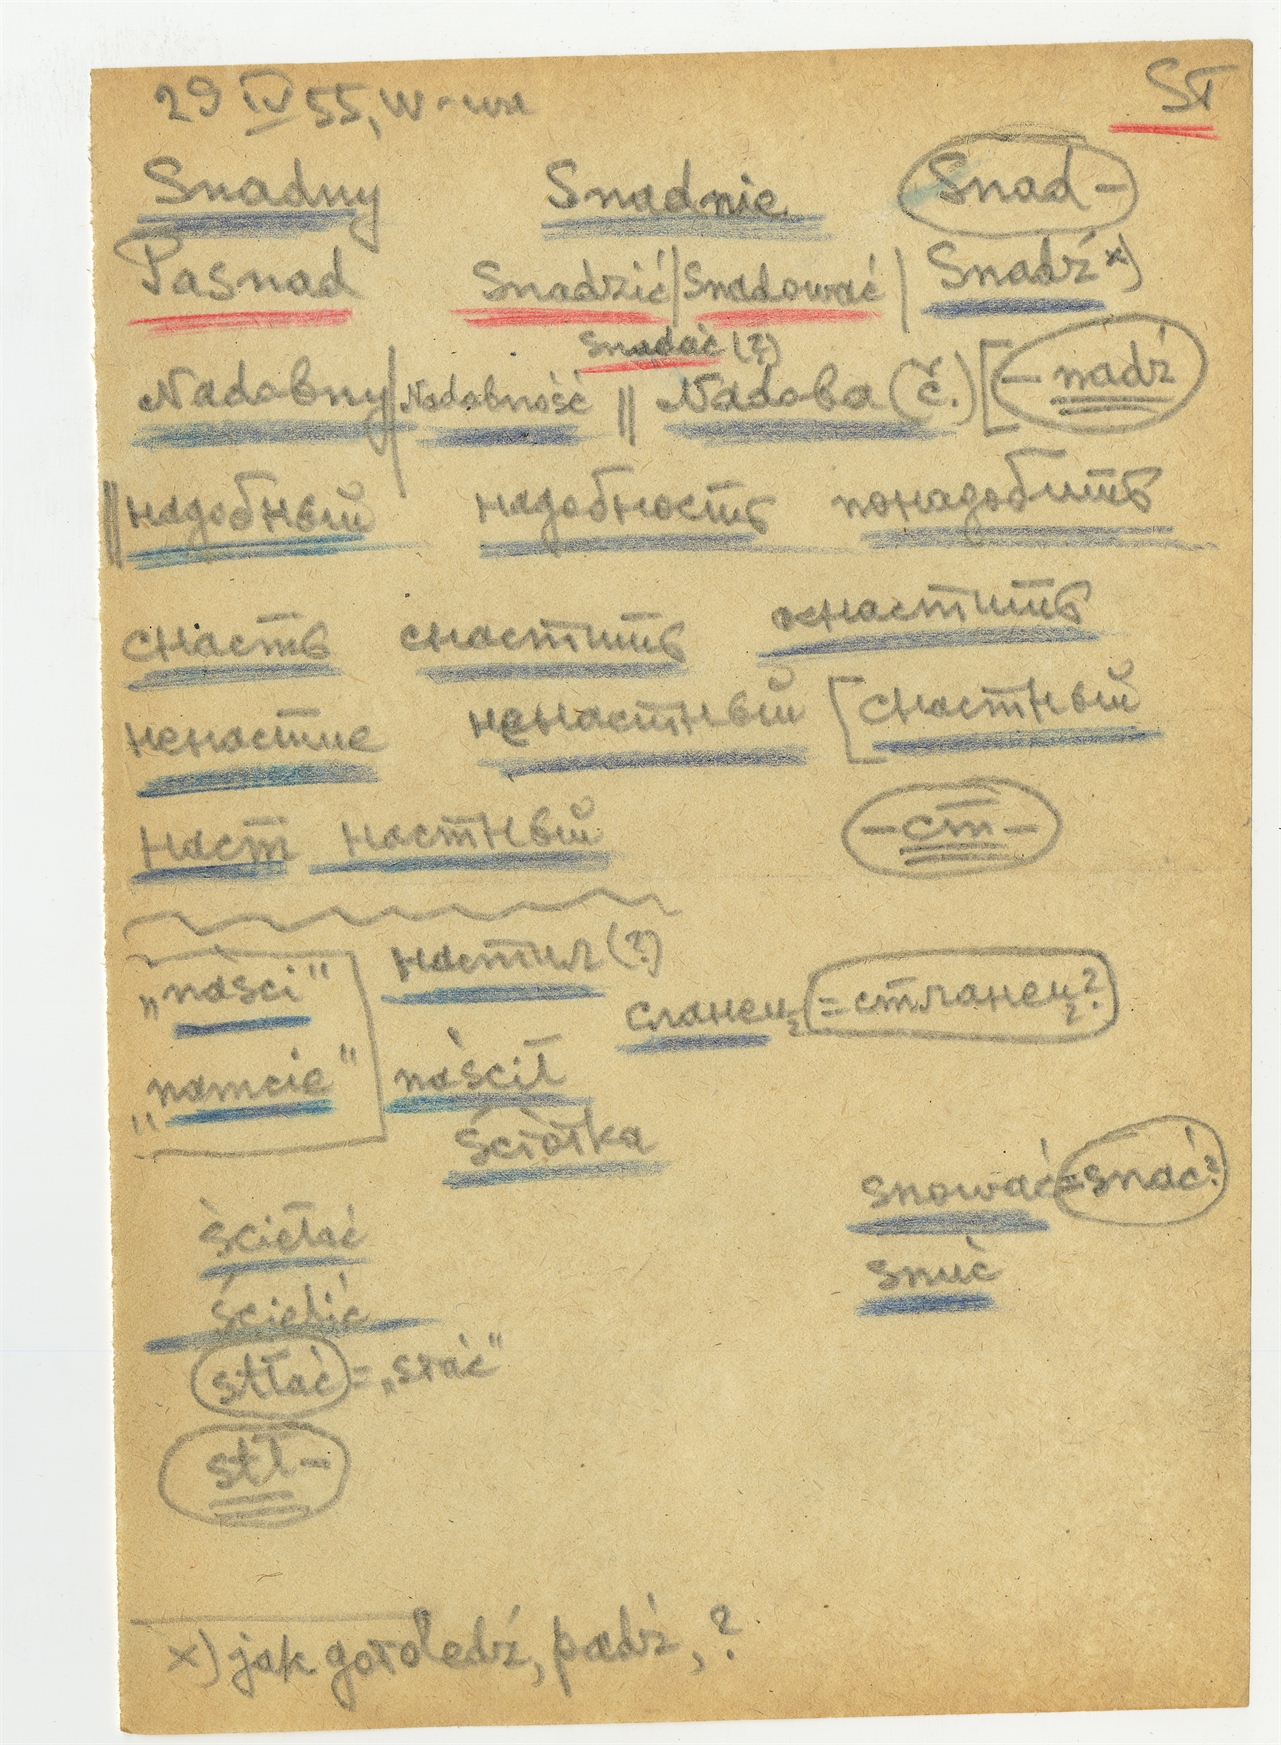 29 IV 55, W-wa SŁ
Snadny Snadnie Snad-
Pasnad Snadzić | Snadować | Snadź x)
Snadać (?)
Nadobny | Nadobność || Nadoba (č.) [ -nadź
|| надобный надобность понадобить
снасть снастить оснастить
ненастие ненастный [ снастный
наст настный -ст-
"naści" настил (?)
сланец = стланец?
"namcie" naścił
ściółka
snować = snać?
ściełać snuć
ścielić
stłać = „słać"
stł-
x) jak gołoledź, pœdź, ?